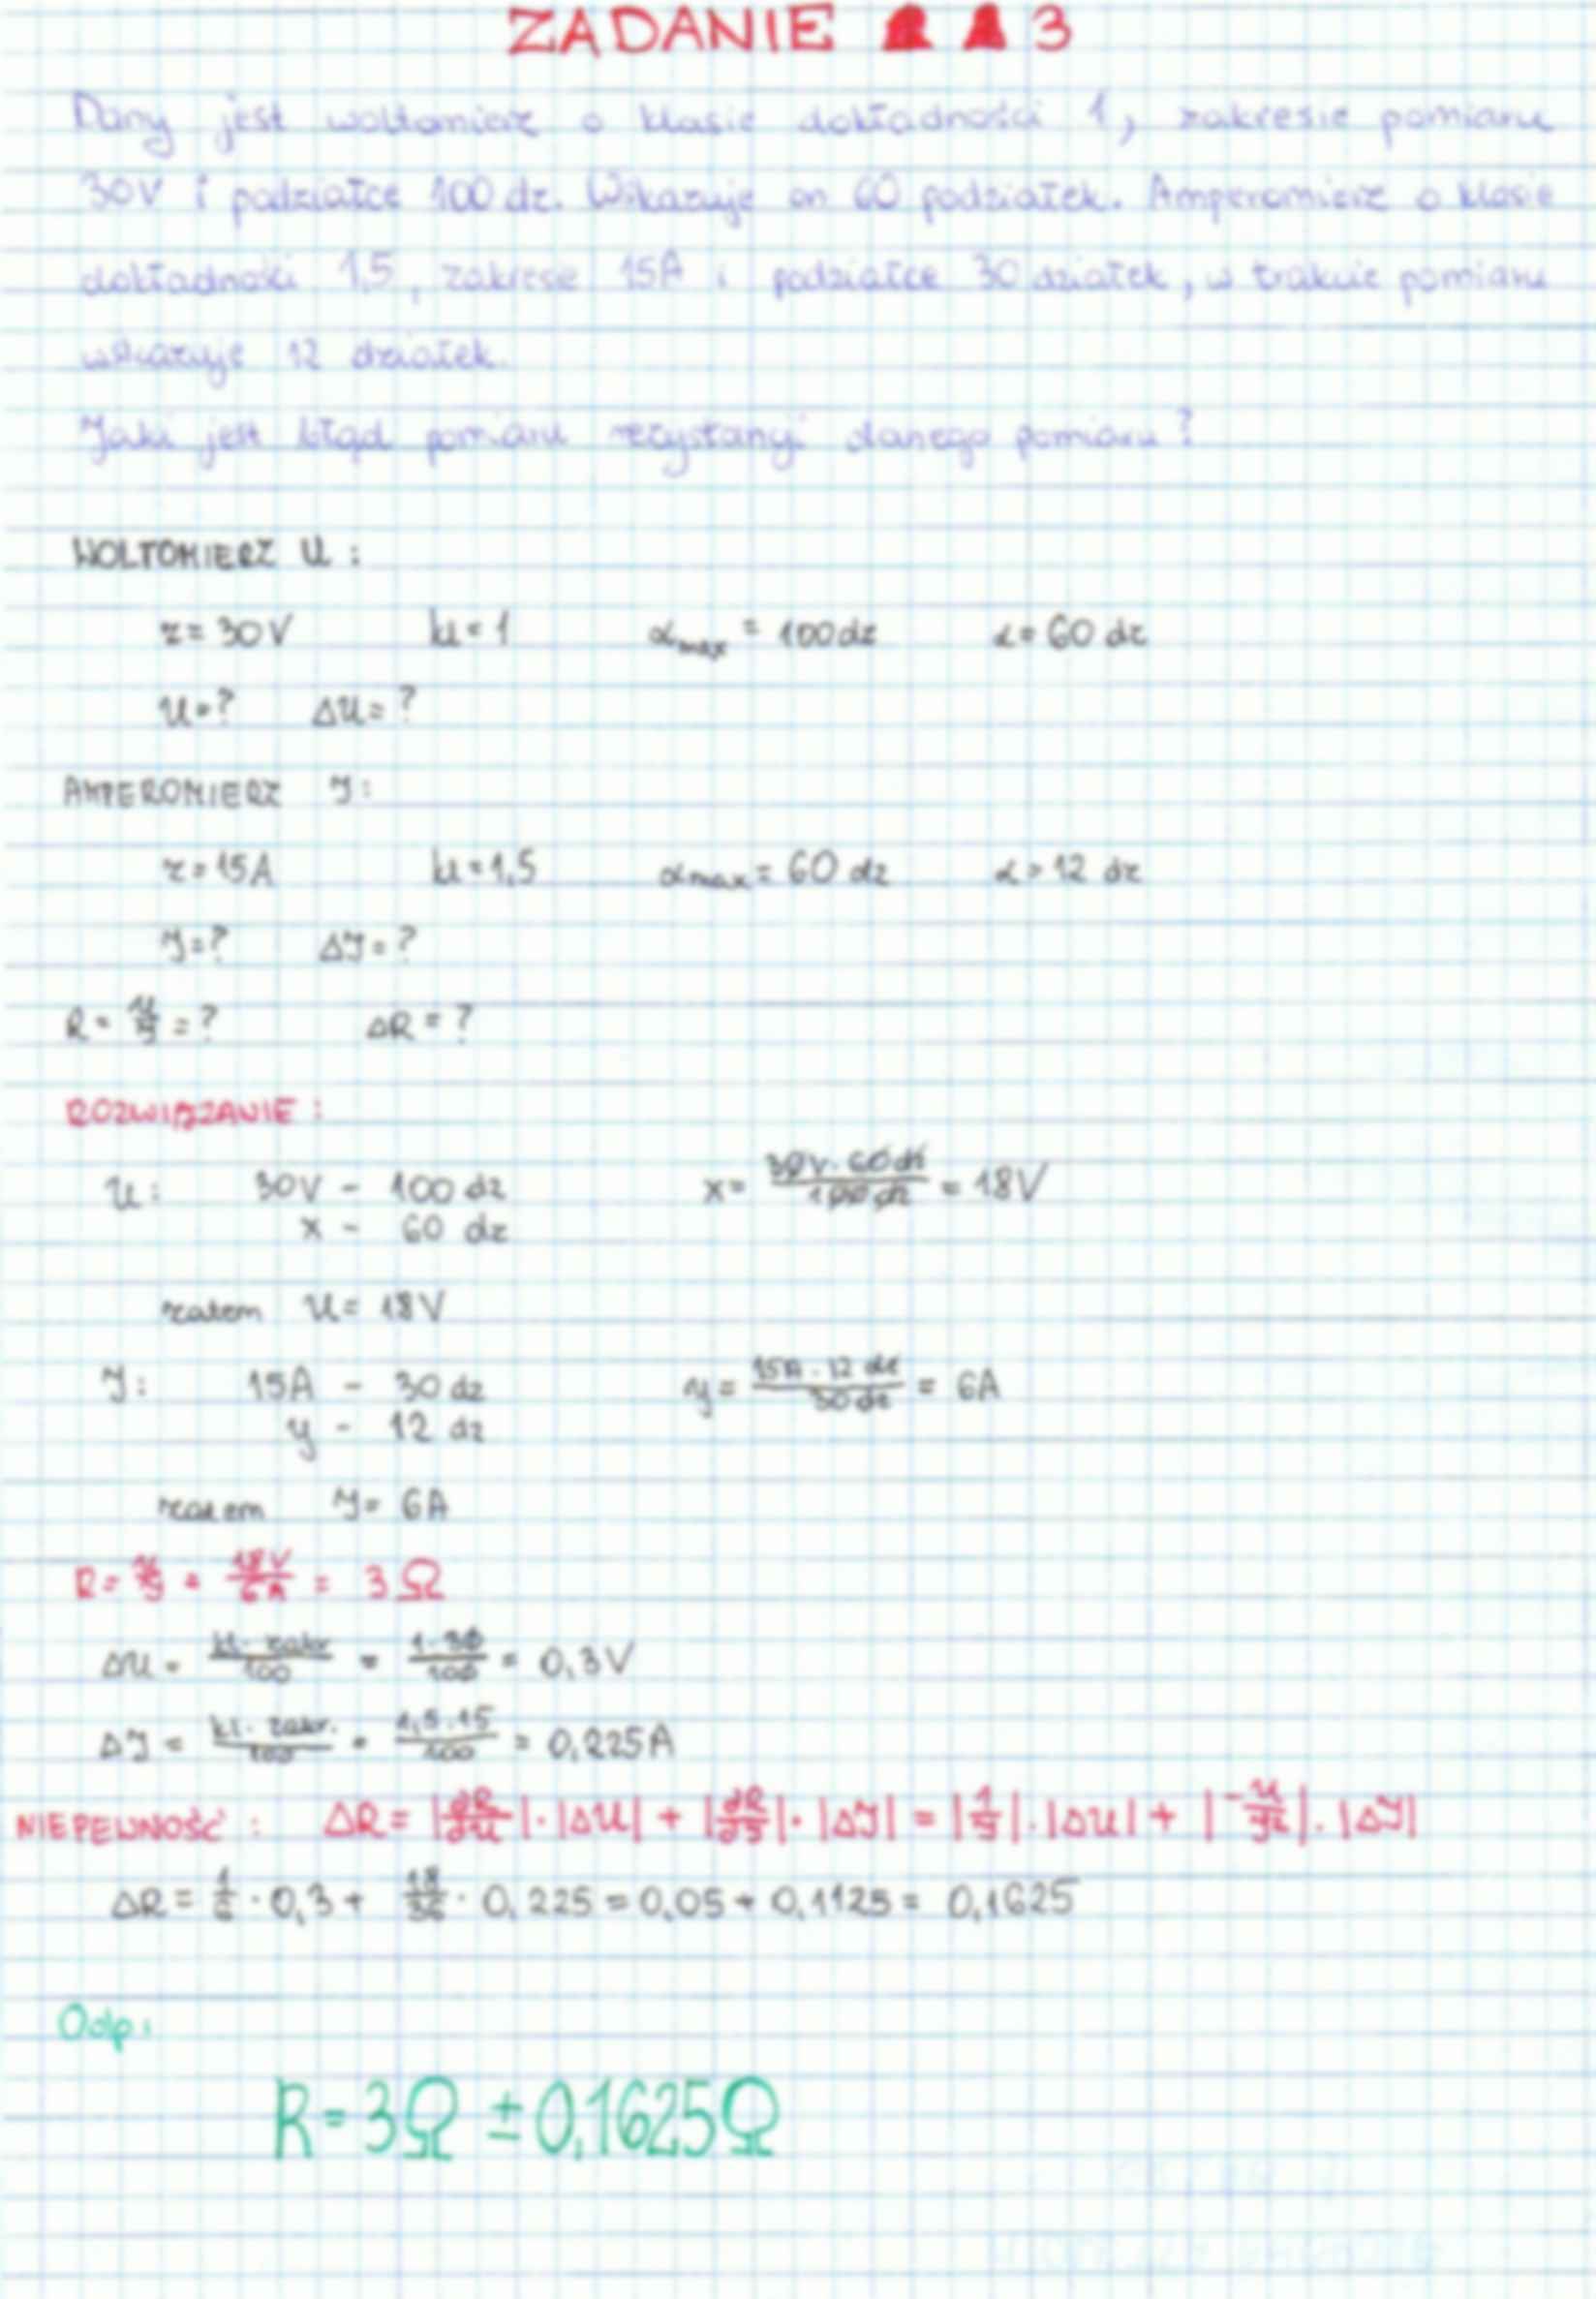 ZADANIE 3
Dany jest woltomierz o klasie dokładności 1, zakresie pomiaru
30V i podziałce 100 dz. Wskazuje on 60 podziałek. Amperomierz o klasie
dokładności 1,5, zakresie 15A i podziałce 30 działek, w trakcie pomiaru
wskazuje 12 działek.
Jaki jest błąd pomiaru rezystancji danego pomiaru?
WOLTOMIERZ U:
z = 30V kl = 1 αmax = 100 dz α = 60 dz
U = ? ΔU = ?
AMPEROMIERZ J:
z = 15A kl = 1,5 αmax = 60 dz α = 12 dz
J = ? ΔJ = ?
R = U/J = ? ΔR = ?
ROZWIĄZANIE:
U: 30V - 100 dz x = 30V · 60dz / 100 dz = 18V
x - 60 dz
zatem U = 18V
J: 15A - 30 dz y = 15A · 12 dz / 30 dz = 6A
y - 12 dz
zatem J = 6A
R = U/J = 18V/6A = 3Ω
ΔU = kl · zakr / 100 = 1 · 30 / 100 = 0,3V
ΔJ = kl · zakr. / 100 = 1,5 · 15 / 100 = 0,225A
NIEPEWNOŚĆ: ΔR = |∂R/∂U| · |ΔU| + |∂R/∂J| · |ΔJ| = |1/J| · |ΔU| + |-U/J²| · |ΔJ|
ΔR = 1/6 · 0,3 + 18/36 · 0,225 = 0,05 + 0,1125 = 0,1625
Odp:
R = 3Ω ± 0,1625Ω